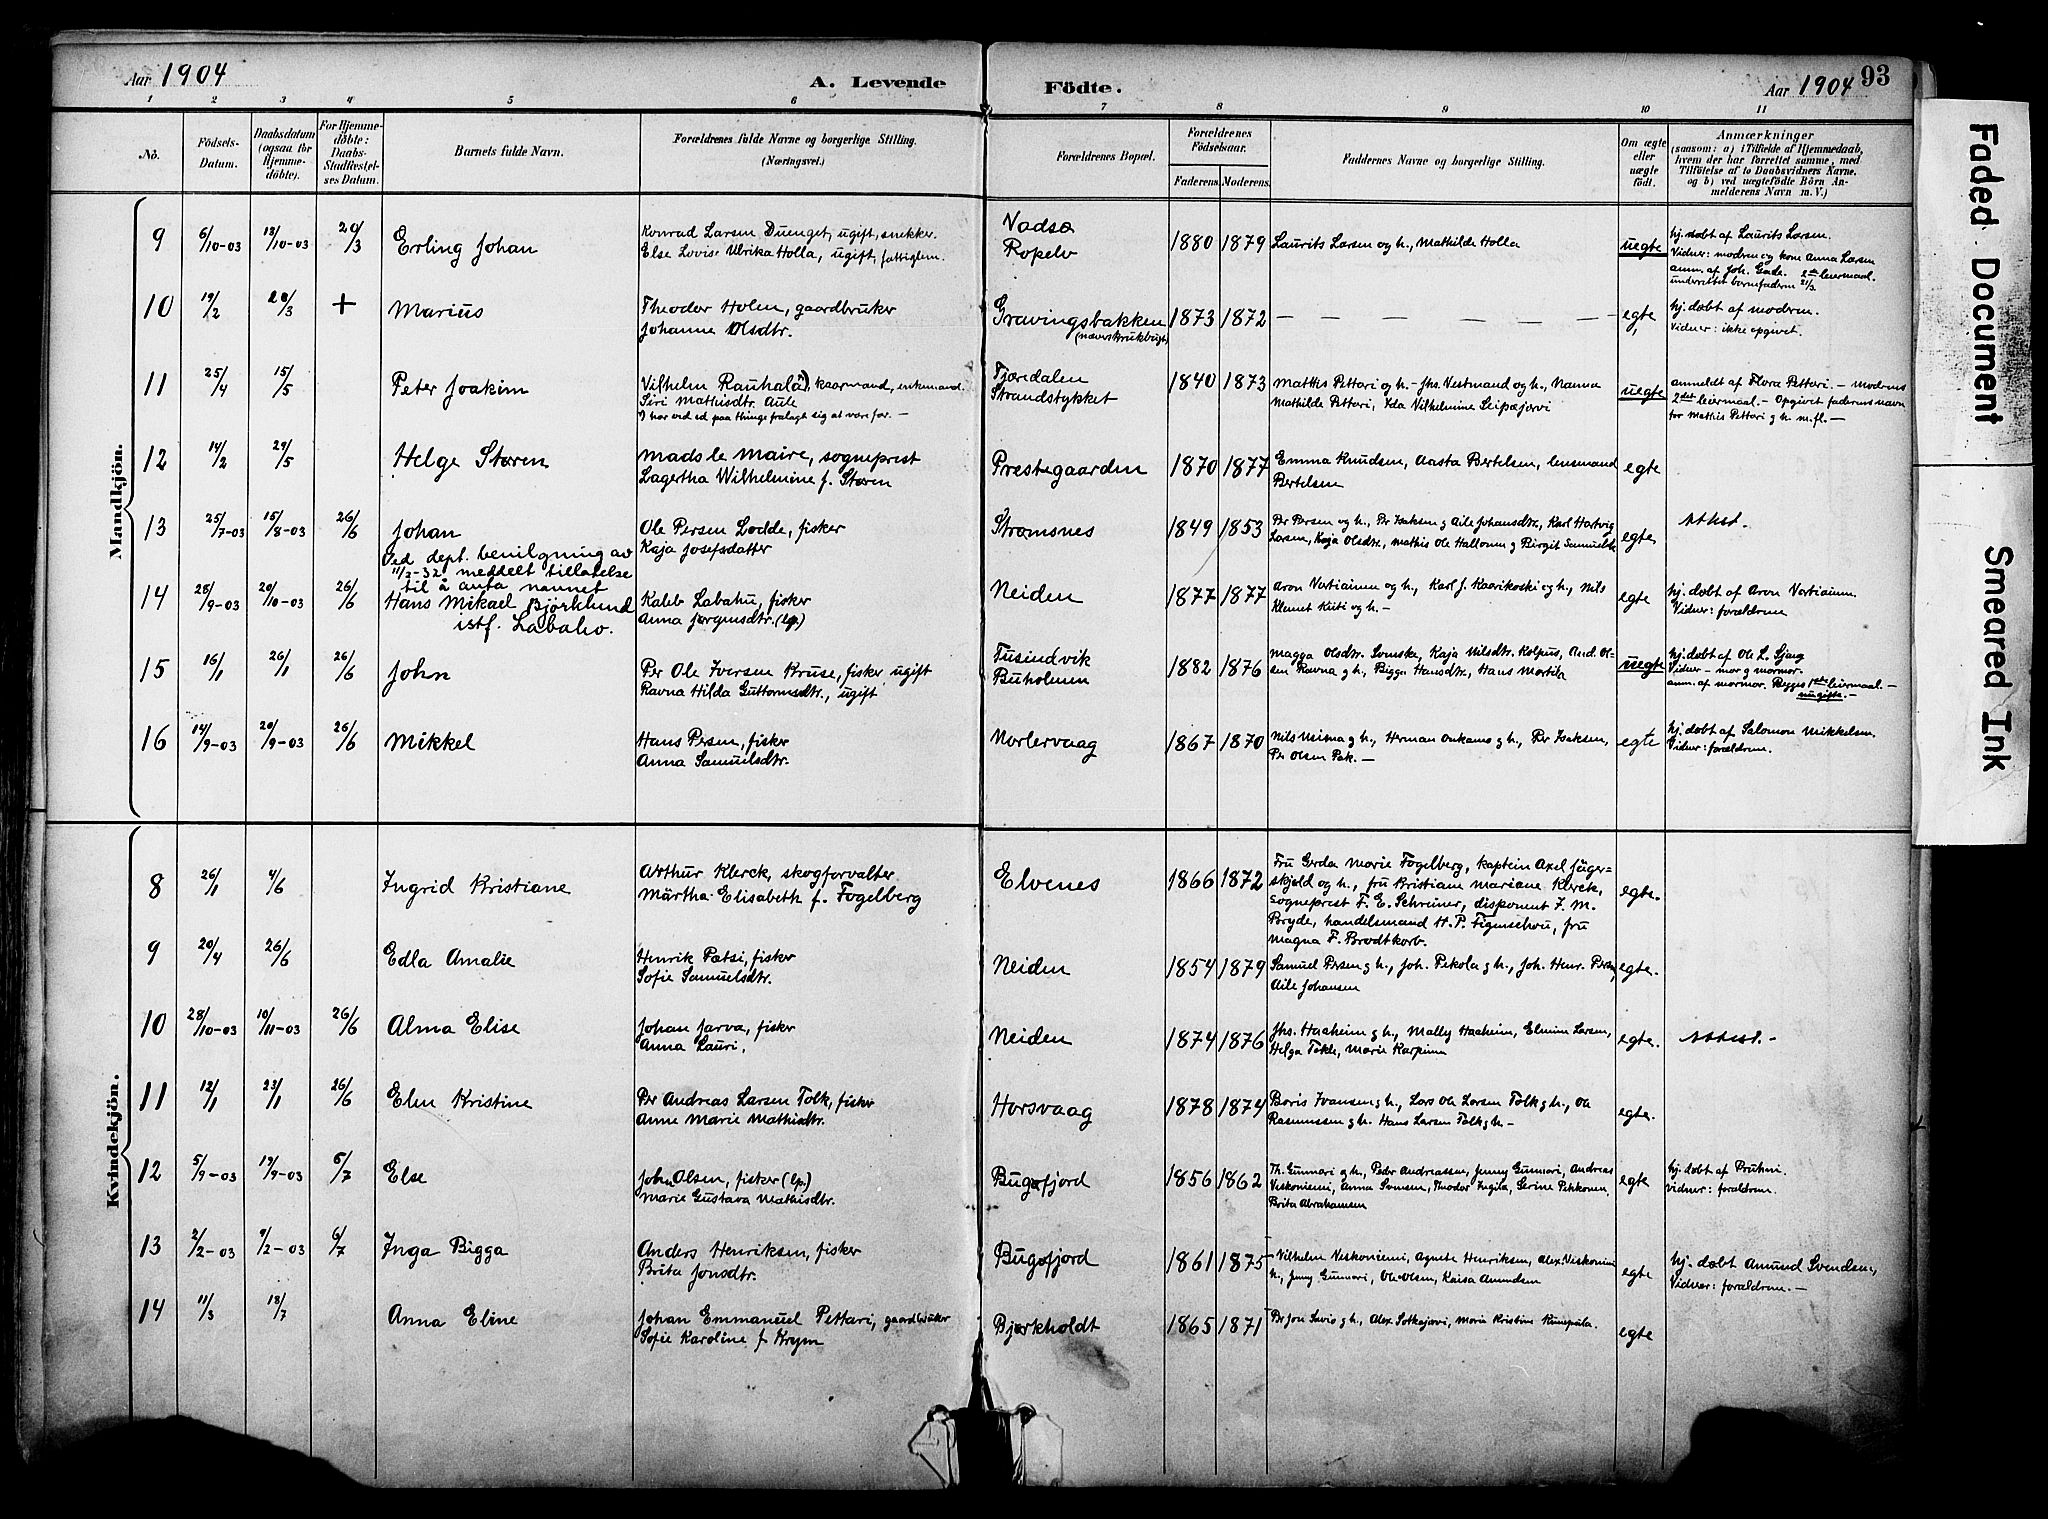 Aar 1904
A. Levende
Födte.
Aar 1904
93
1 2 3 4 5 6 7 8 9 10 11
No.
Födsels-Datum.
Daabsdatum (ogsaa for Hjemmedöbte).
For Hjemmedöbte: Daabs-Stadfestelses Datum.
Barnets fulde Navn.
Forældrenes fulde Navne og borgerlige Stilling.
(Næringsvei.)
Forældrenes Bopæl.
Forældrenes Födselsaar.
Faderens. Moderens.
Faddernes Navne og borgerlig Stilling.
Om ægte eller uægte födt.
Anmærkninger
(saasom: a) i Tilfælde af Hjemmedaab, hvem der har forrettet samme, med Tilföielse af to Daabsvidners Navne. og b) ved uægtefödte Börn Anmelderens Navn m. V.)
Mandkjön.
9 6/10-03 18/10-03 20/3 Erling Johan
Konrad Larsen Duenget, ugift, snekker.
Else Lovise Ulrika Holla, ugift, fattiglem.
Vadsø
Ropelv
1880 1879
Laurits Larsen og h., Mathilde Holla
uegte
hj. døbt af Laurits Larsen.
Vidner: modren og kone Anna Larsen
anm. af Joh. Gade. 2det leiermaal.
underrettet barnefaderen 21/3.
10 19/2 20/3 + Marius
Theodor Holm, gaardbruker
Johanne Olsdtr.
Gravingsbakken
1873 1872
— — — — — — —
egte
hj. døbt af modren.
Vidner: ikke opgivet.
11 25/4 15/5 Peter Joakim
Vilhelm Rauhala*), kaarmand, enkemand.
Siri Mathisdtr. Aule
*) har ved ed paa thinge fralagt sig at være far. —
Tjæredalen
Strandstykket
1840 1873
Mathis Pettari og h. – Jhs. Vestmand og h., Nanna
Mathilde Pettari, Ida Vilhelmine Seipæjærvi
uegte
anmeldt af Flora Pettari. – modrens
2det leiermaal. – Opgivet faderens navn
for Mathis Pettari g h. m. fl. —
12 14/2 29/5 Helge Støren
Mads le Maire, sogneprest
Lagertha Wilhelmine f. Støren
Prestegaarden
1870 1877
Emma Knudsen, Aasta Bertelsen, lensmand
Bertelsen
egte
13 25/7-03 15/8-03 26/6 Johan
Ole Persen Lodde, fisker
Kaja Josefsdatter
Strømsnes
1849 1853
Per Persen og h., Per Isaksen g Aile Johansdtr., Karl Hartvig
Larsen, Kaja Olsdtr., Mathis Ole Hallonen g Birgit Samuelsdtr
egte
Attest.
Ved dept. bevilgning av
11/2-32 meddelt tillatelse
til å anta navnet
14 25/9-03 20/10-03 26/6 Hans Mikael Björklund
istf. Labaho.
Kaleb Labahu, fisker
Anna Jørgensdtr. (lp)
Neiden
1877 1877
Aron Vartiainen og h., Karl J. Kaarikoski og h., Nils
Klemet Kiiti og h. –
egte
hj. døbt af Aron Vartiainen.
Vidner: forældrene
15 16/1 26/1 26/6 John
Per Ole Iversen Kruse, fisker, ugift
Ravna Hilda Guttormsdtr., ugift
Tusindvik
Buholmen
1882 1876
Magga Olsdtr. Svenske, Kaja Nilsdtr. Kolpus, And. Ol-
sen Ravna g h., Bigga Hansdtr., Hans Mortila
uegte
hj. døbt af Ole L. Sjang
Vidner – mor g mormor.
anm. af mormor. Begges 1ste leiermaal. –
ugifte. –
16 14/9-03 20/9-03 26/6 Mikkel
Hans Persen, fisker
Anna Samuelsdtr.
Norlervaag
1867 1870
Nils Neima g h., Herman Onkamo g h., Per Isaksen,
Per Olsen Pak. —
egte
hj. døbt af Salomon Mikkelsen.
Vidner: forældrene.
Kvindekjön.
8 26/1 4/6 Ingrid Kristiane
Arthur Klerck, skogforvalter
Märtha Elisabeth f. Fogelberg
Elvenes
1866 1872
Fru Gerda Marie Fogelberg, kaptein Axel Jäger-
skjold og h., fru Kristiane Mariane Klerck,
sogneprest F. E. Schreiner, disponent J. M.
Bryde, handelsmand H. P. Figenschou, fru
Magna F. Brodtkorb.
egte.
9 20/4 26/6 Edla Amalie
Henrik Pætsi, fisker
Sofie Samuelsdtr.
Neiden
1854 1879
Samuel Persen g h., Joh. Pikola g h., Joh. Henr. Persen,
Aile Johansen
egte.
10 28/10-03 10/11-03 26/6 Alma Elise
Johan Jarva, fisker
Anna Lauri.
Neiden
1874 1876
Jhs. Haaheim g h., Mally Haaheim, Elmine Larsen,
Helga Tekle, Marie Karpinen
egte.
Attest. –
11 12/1 23/1 26/6 Elen Kristine
Per Andreas Larsen Tolk, fisker
Anne Marie Mathisdtr.
Horsvaag
1878 1874
Boris Ivansen g h., Lars Ole Larsen Tolk g h., Ole
Rasmussen g h. Hans Larsen Tolk g h. –
egte.
12 5/9-03 19/9-03 6/7 Else
John Olsen, fisker (lp.)
Marie Gustava Mathisdtr.
Bugøfjord
1856 1862
Th. Gunnari g h., Peder Andreassen, Jenny Gunnari, Andreas
Veskoniemi, Anna Svensen, Theodor Ingila, Serine Pekkonen,
Brita Abrahamsen
egte
hj. døbt af Pruhni
vidner: forældrene.
13 2/2-03 9/2-03 6/7 Inga Bigga
Anders Henriksen, fisker
Brita Jonsdtr.
Bugøfjord
1861 1875
Vilhelm Veskoniemi, Agnete Henriksen, Alex. Veskoniemi
h., Jenny Gunnari, Ole Olsen, Kaisa Amundsen
egte
hj. døbt Amund Svendsen,
Vidner: forældrene. –
14 11/3 18/7 Anna Eline
Johan Emmanuel Pettari, gaardbruker
Sofie Karoline f. Krym
Bjørkholdt
1865 1871
Per Jon Savio g h., Alex Sotkajærvi, Maria Kristine Rumpula.
egte
Faded Document
Smeared Ink